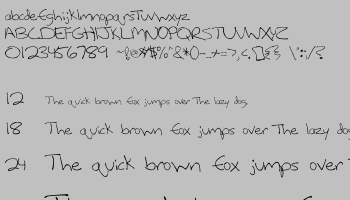 abcdefghijklmnopqrstuvwxyz
ABCDEFGHIJKLMNOPQRSTUVWXYZ
0123456789 ~!@#$%^&*()-_+=>,<.[]{} \":;/?
12 The quick brown fox jumps over the lazy dog.
18 The quick brown fox jumps over the lazy dog
24 The quick brown fox jumps over